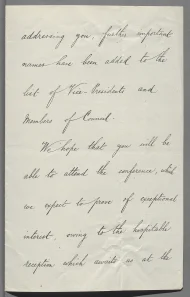 addressing you, further important
names have been added to the
list of Vice-Presidents and
Members of Council.
We hope that you will be
able to attend the conference, which
we expect to prove of exceptional
interest, owing to the hospitable
reception which awaits us at the